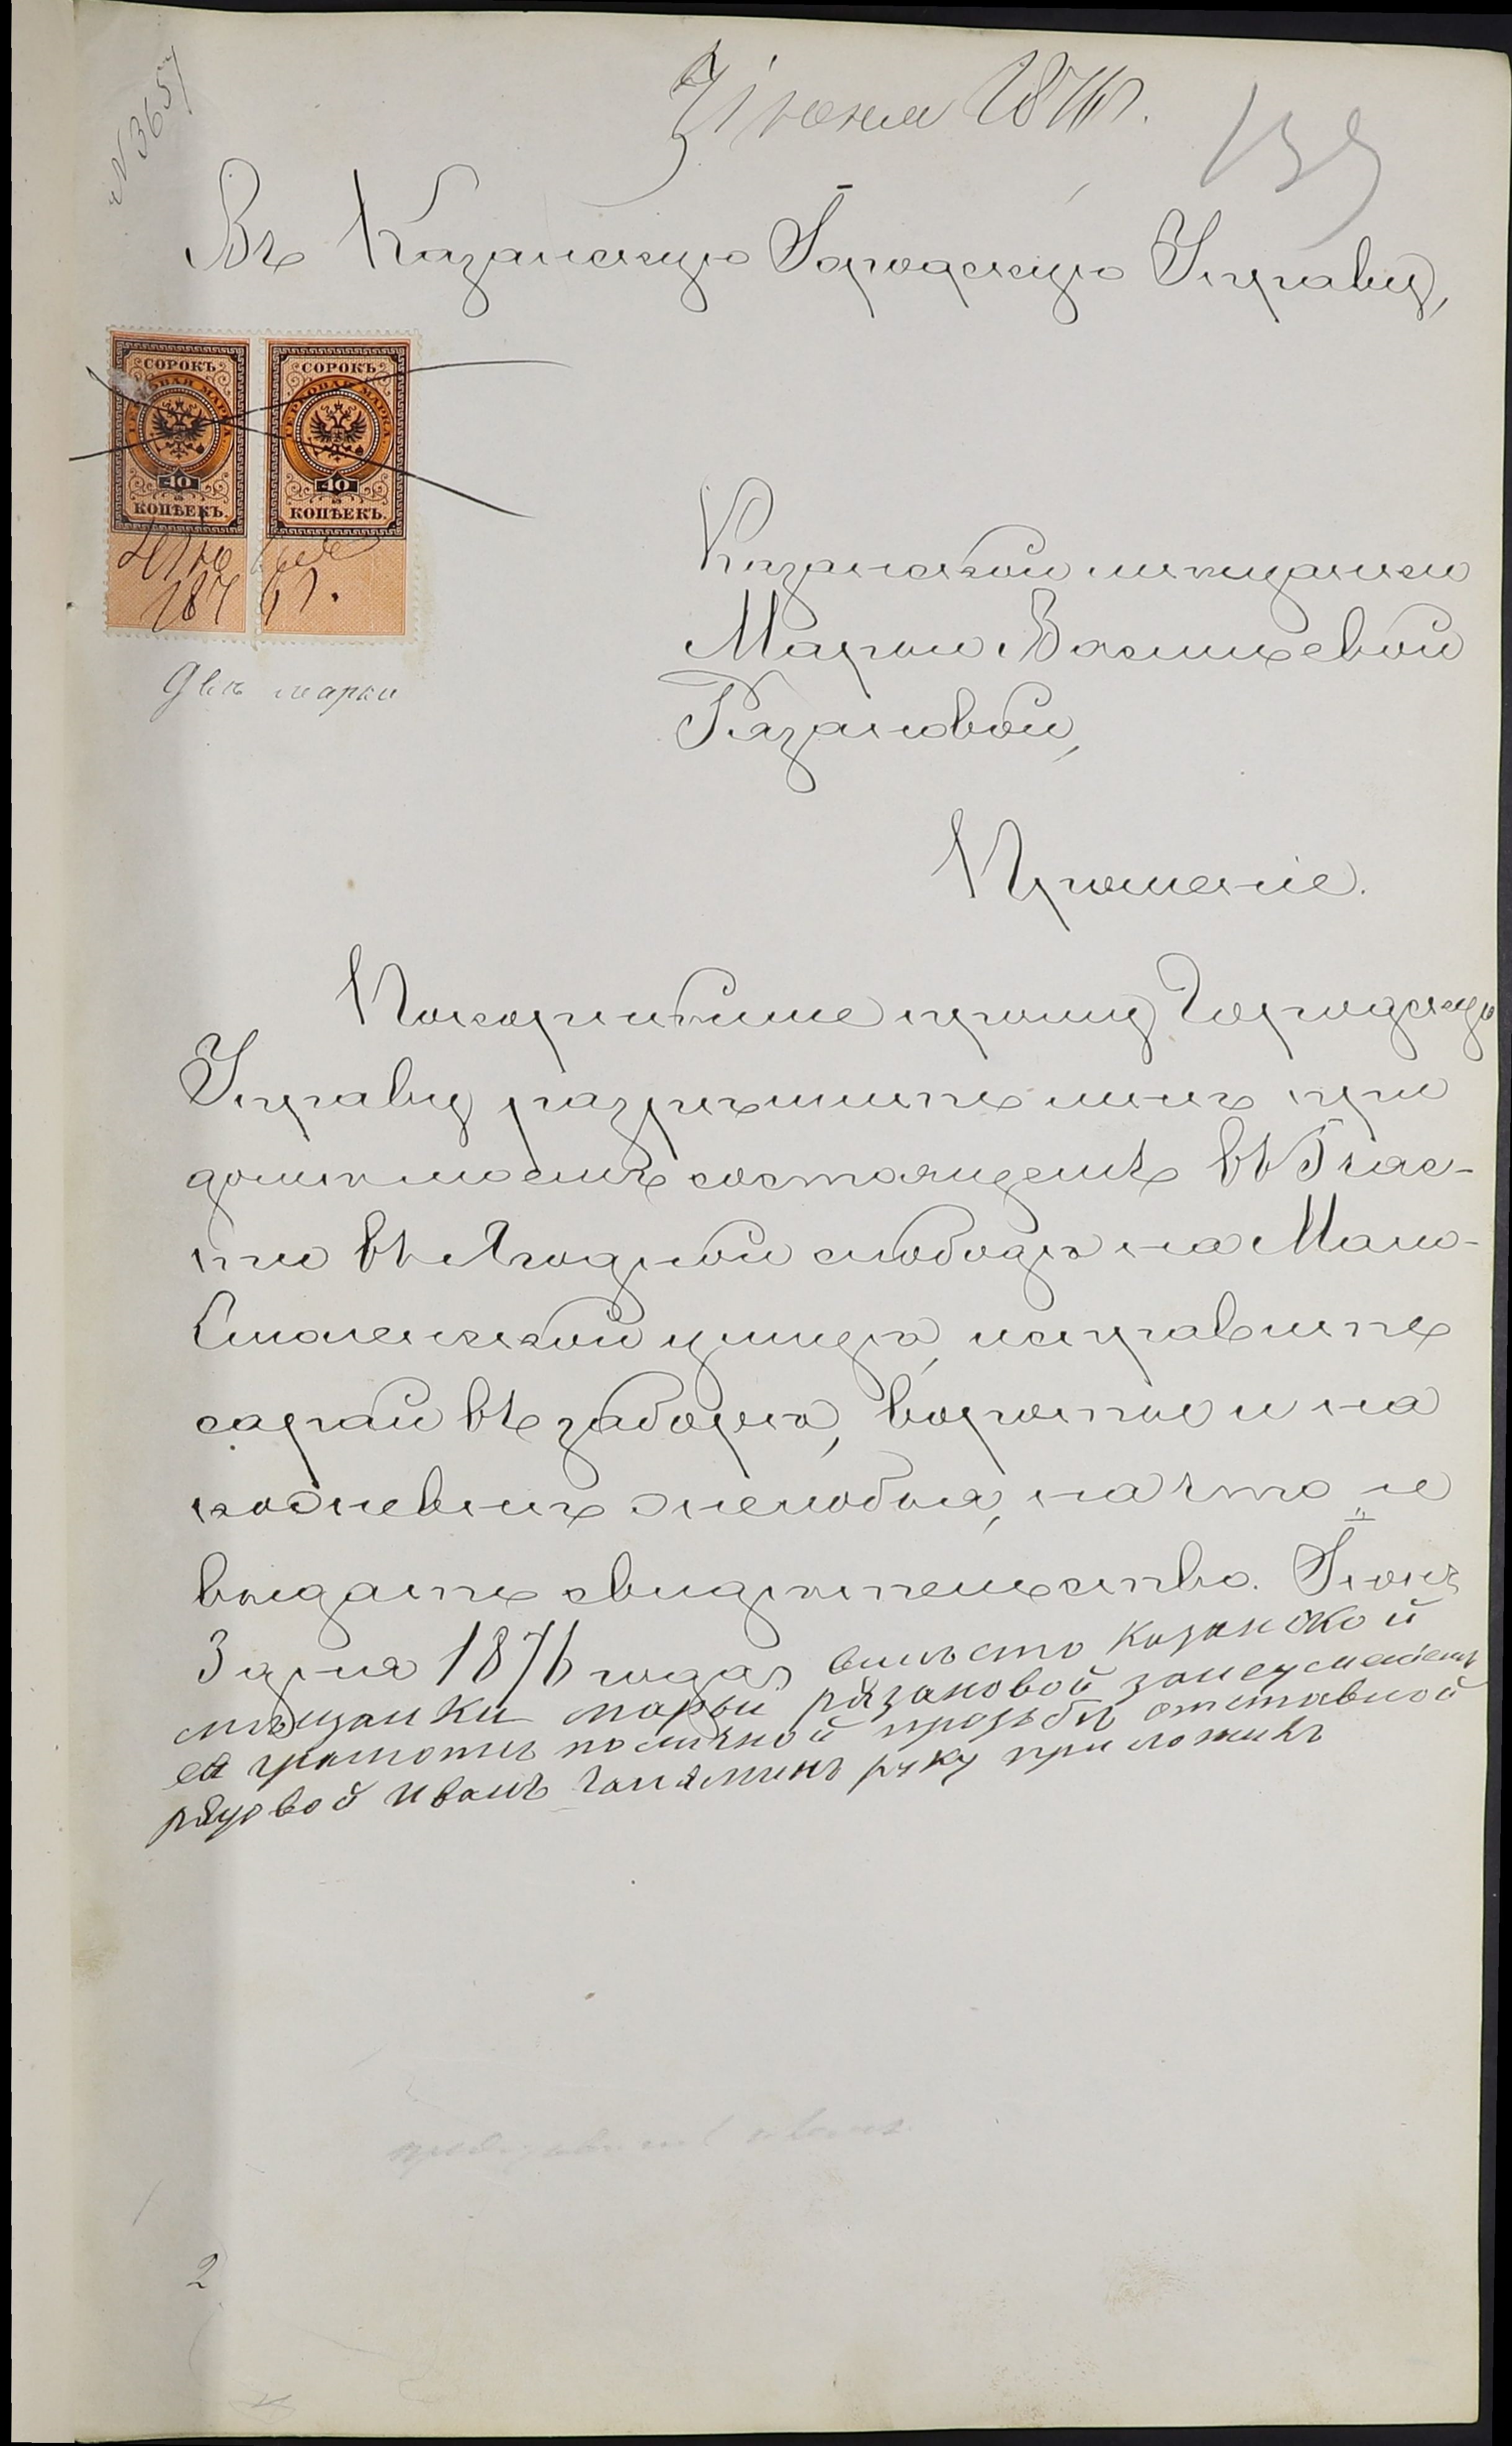 № 3657
3 Іюня 1876 г.
139
Въ Казанскую Городскую Управу,
СОРОКЪ СОРОКЪ
ГЕРБОВАЯ МАРКА ГЕРБОВАЯ МАРКА
40 40
КОПѢЕКЪ. КОПѢЕКЪ.
187 6 г.
Двѣ марки
Казанской мѣщанки
Марьи Васильевой
Рязановой,
Прошеніе.
Покорнѣйше прошу Городскую
Управу разрѣшить мнѣ при
домѣ моемъ состоящемъ въ 5 час-
ти въ Ягодной слободѣ на Мало-
Смоленской улицѣ, исправить
сарай въ заборѣ, вороты и на
погребъ, на что и
выдать свидѣтельство. Іюнь
3 дня 1876 года вмѣсто казанской
мѣщанки марьи рязановой занеумениемъ
ея грамоты поличной прозьбѣ отставной
рядовой иванъ руку приложилъ
2